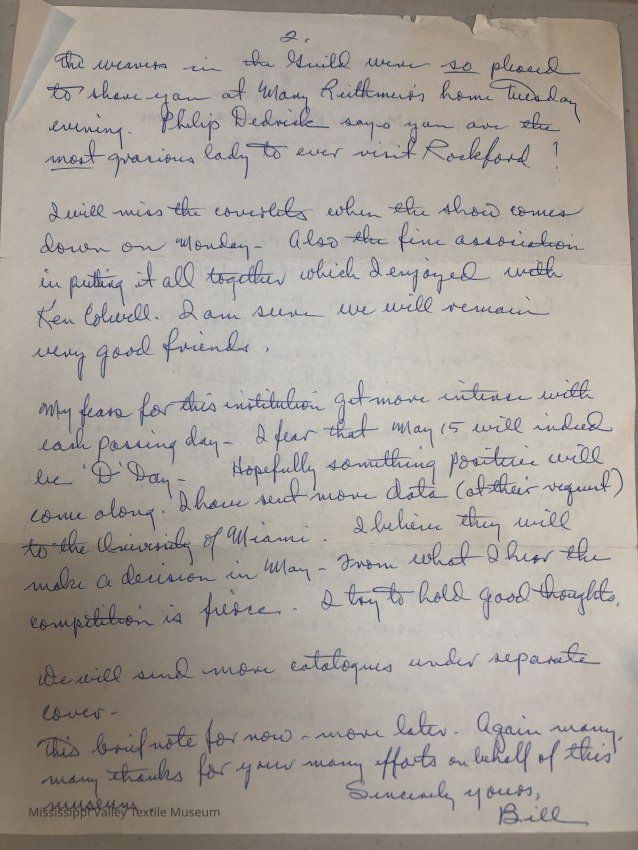 2.
The weavers in the Guild were so pleased
to share you at Mary Reithmeir's home Tuesday
evening. Philip Dedrick says you are the
most gracious lady to ever visit Rockford!
I will miss the coverlets when the show comes
down on Monday - Also the fine association
in putting it all together which I enjoyed with
Ken Colwell. I am sure we will remain
very good friends.
My fears for this institution get more intense with
each passing day - I fear that May 15 will indeed
be 'D' Day - Hopefully something positive will
come along. I have sent more data (at their request)
to the University of Miami. I believe they will
make a decision in May - From what I hear the
competition is fierce. I try to hold good thoughts.
We will send more catalogues under separate
cover -
This brief note for now - more later. Again many,
many thanks for your many efforts on behalf of this
museum
Sincerely yours,
Bill
Mississippi Valley Textile Museum